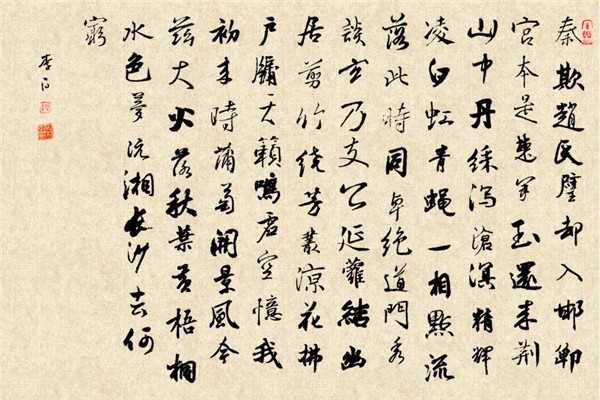 秦欺趙氏璧却入邯鄲
宮本是楚家玉還來荊
山中丹綵瀉滄溟精輝
凌白虹青蠅一相點流
落此時同卓絕道門秀
談玄乃支公延蘿結幽
居剪竹繞芳叢涼花拂
戶牖天籟鳴虛空憶我
初來時蒲萄開景風今
茲大火落秋葉黃梧桐
水色夢沅湘長沙去何
窮
李白